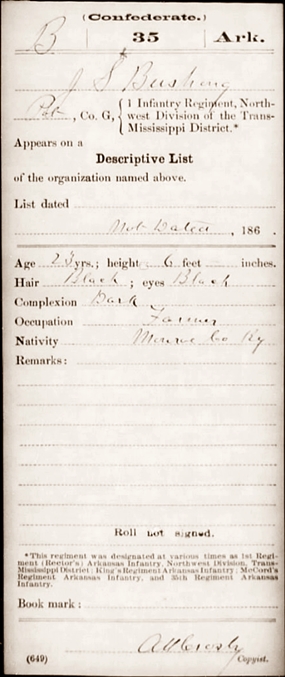 (Confederate.)
B | 35 | Ark.
J S Bushong
Pvt, Co. G, { 1 Infantry Regiment, North-
west Division of the Trans-
Mississippi District.*
Appears on a
Descriptive List
of the organization named above.
List dated
Not Dated, 186 .
Age 23 yrs.; height 6 feet inches.
Hair Black; eyes Black
Complexion Dark
Occupation Farmer
Nativity Monroe Co Ky
Remarks:
Roll not signed.
*This regiment was designated at various times as 1st Regi-
ment (Rector's) Arkansas Infantry, Northwest Division, Trans-
Mississippi District; King's Regiment Arkansas Infantry; McCord's
Regiment Arkansas Infantry, and 35th Regiment Arkansas
Infantry.
Book mark:
(649) Copyist.